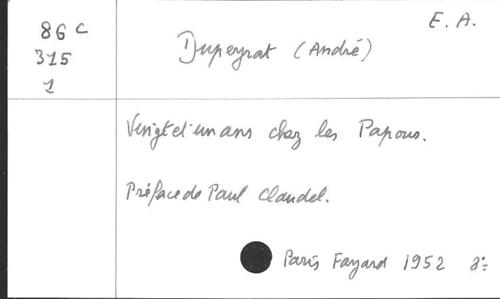 E. A.
86 C
315
1
Dupeyrat (André)
Vingt et un ans chez les Papous.
Préface de Paul Claudel.
Paris Fayard 1952 8º